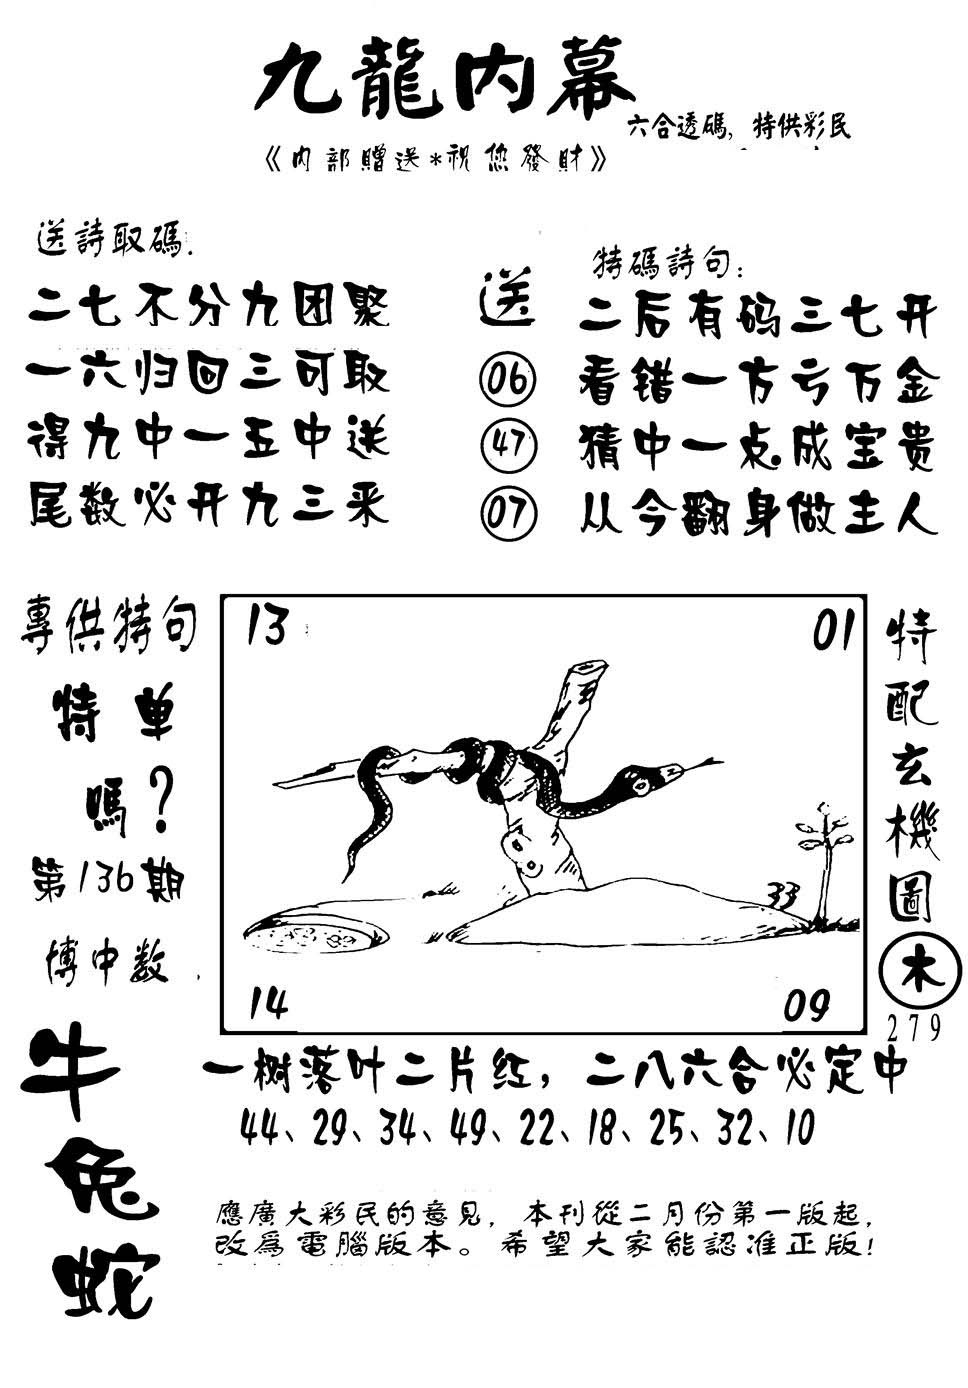 九龍内幕
六合透碼，特供彩民
《内部贈送*祝您發財》
送詩取碼：
二七不分九团聚
一六归回三可取
得九中一五中送
尾数必开九三来
送
06
47
07
特碼詩句：
二后有码三七开
看错一方亏万金
猜中一点成宝贵
从今翻身做主人
專供特句
特单
嗎？
第136期
博中数
牛
兔
蛇
13
01
33
14
09
特配玄機圖
木
279
一树落叶二片红，二八六合必定中
44、29、34、49、22、18、25、32、10
應廣大彩民的意見，本刊從二月份第一版起，
改爲電腦版本。希望大家能認准正版！